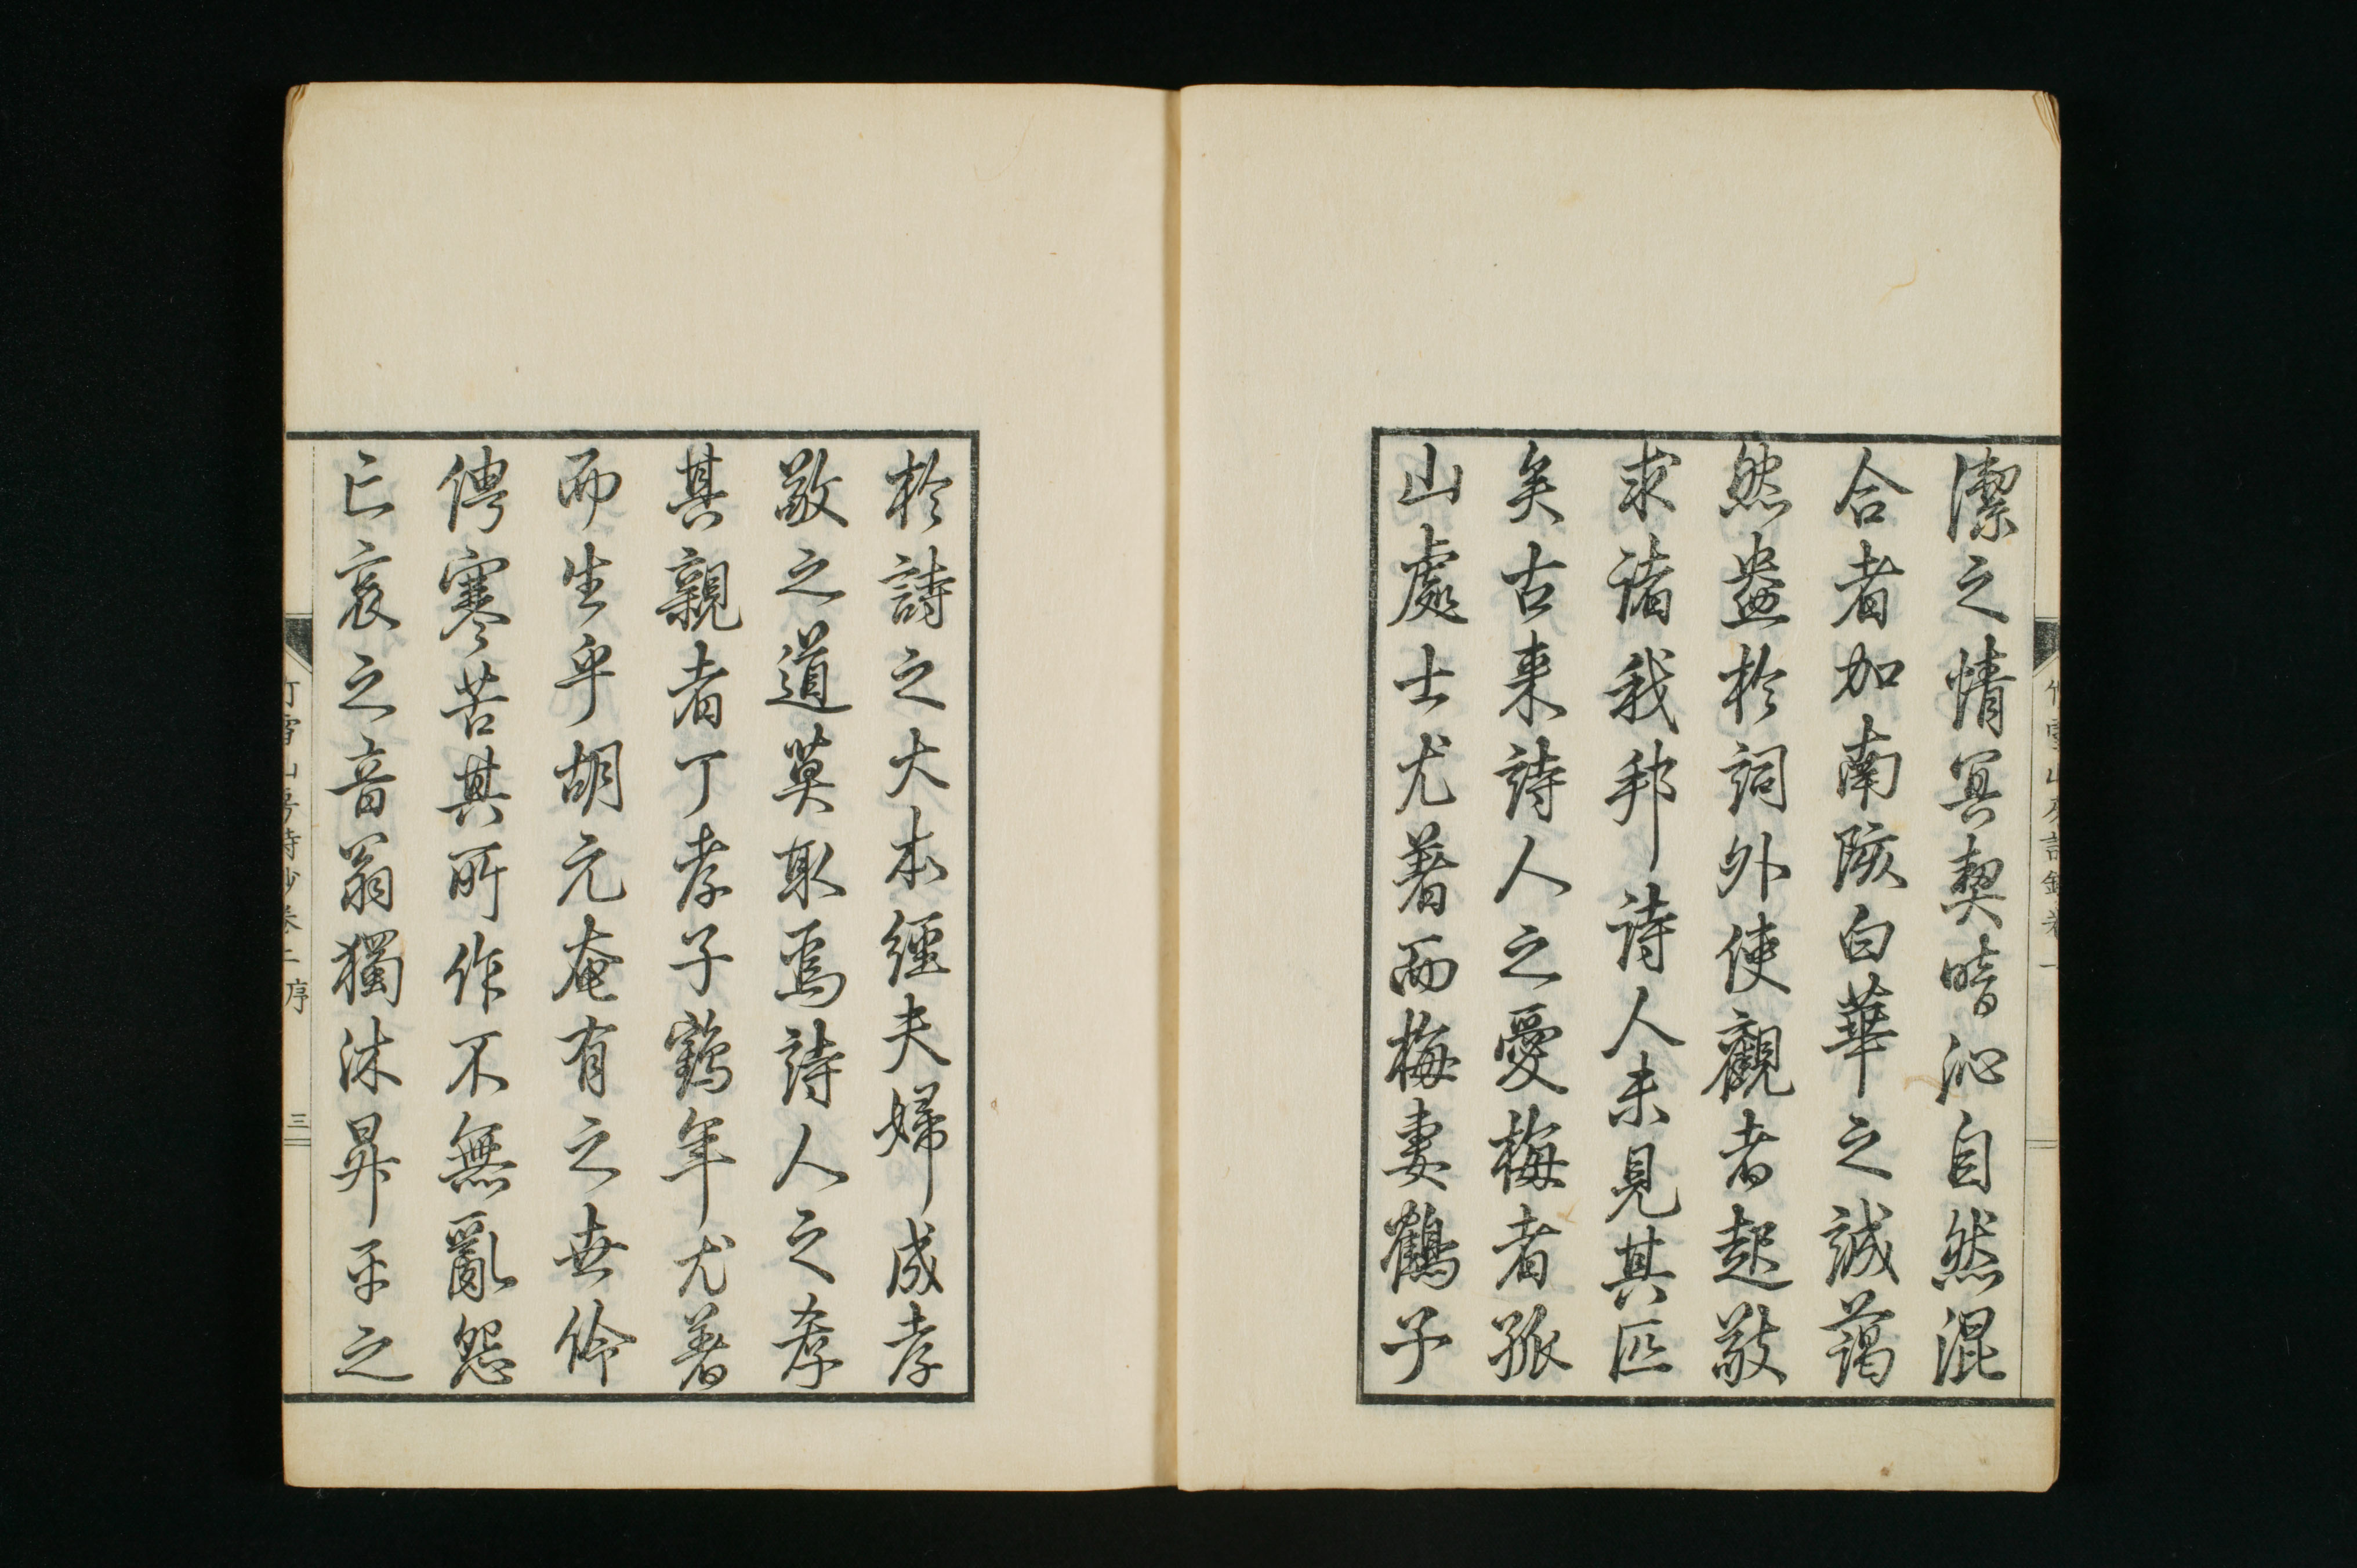 潔之情冥契暗沁自然混
合者加南陔白華之誠藹
然盎於詞外使觀者起敬
求諸我邦詩人未見其匹
矣古來詩人之愛梅者孤
山處士尤著而梅妻鶴子
於詩之大本經夫婦成孝
敬之道莫取焉詩人之孝
其親者丁孝子鶴年尤著
而生乎胡元奄有之世伶
俜寒苦其所作不無亂怨
亡哀之音翁獨沐昇平之
竹雪山房詩鈔卷一序 三